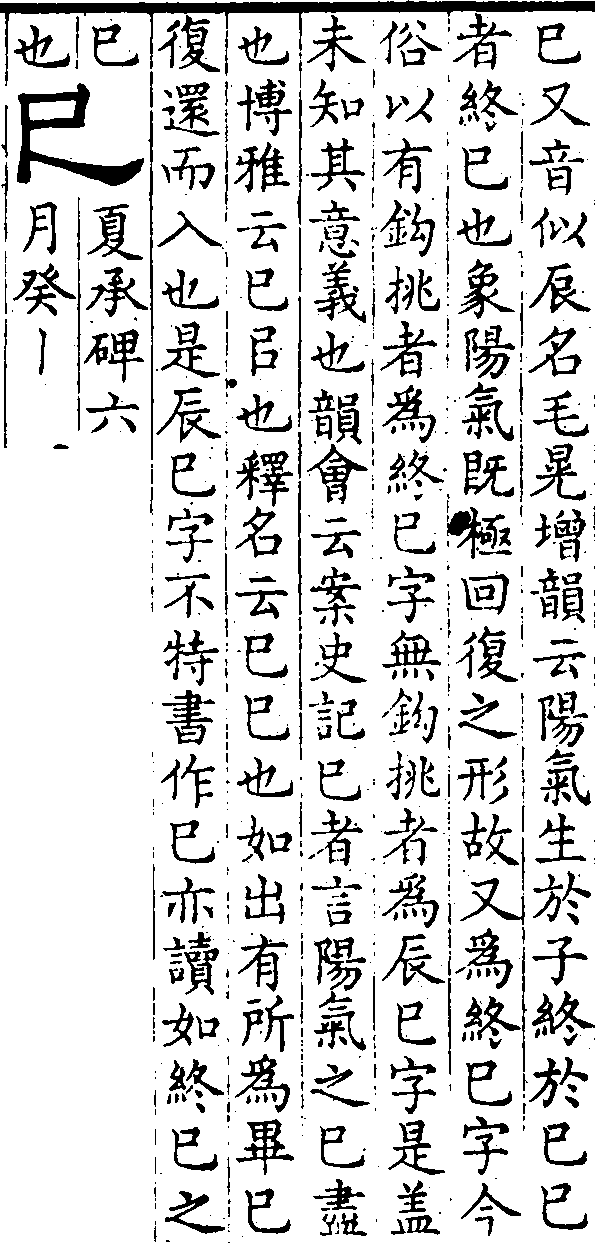 巳又音似辰名毛晃增韻云陽氣生於子終於巳巳
者終巳也象陽氣既極回復之形故又為終巳字今
俗以有鈎挑者為終巳字無鈎挑者為辰巳字是盖
未知其意義也韻會云案史記巳者言陽氣之巳盡
也博雅云巳㠯也釋名云巳巳也如出有所為畢巳
復還而入也是辰巳字不特書作巳亦讀如終巳之
巳
也
巳
夏承碑六
月癸丨